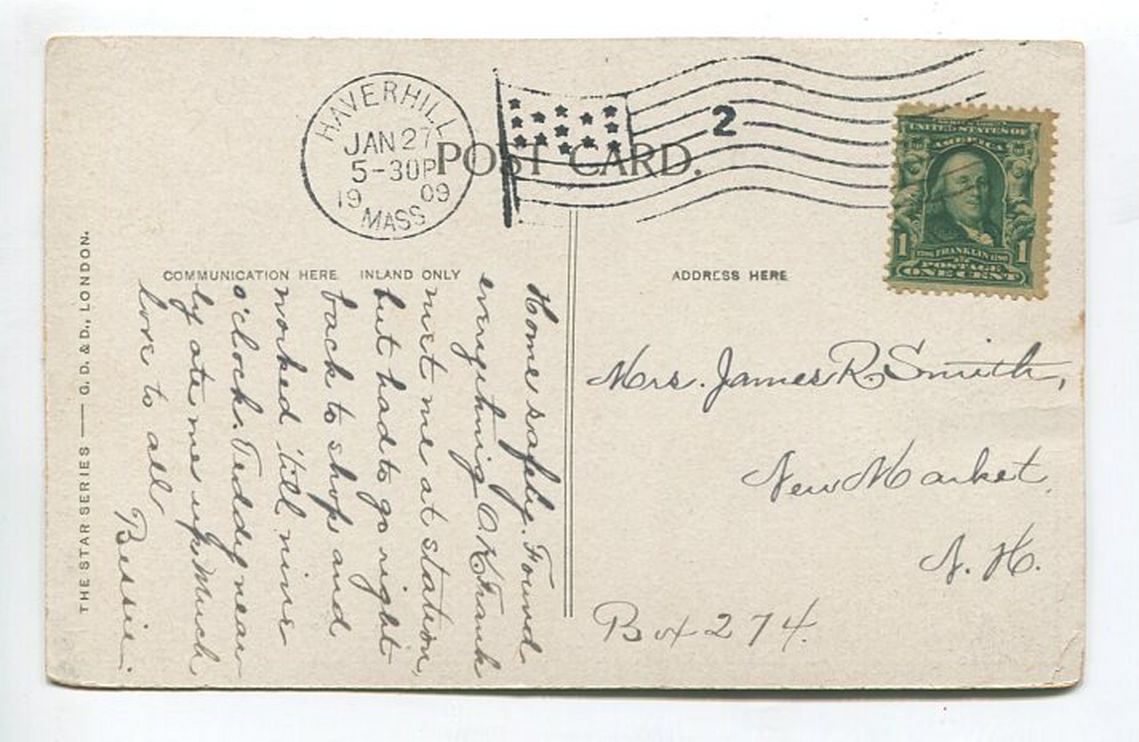 HAVERHILL
JAN 27
5-30P
19 09
MASS
2
POST CARD.
UNITED STATES OF
AMERICA
1 FRANKLIN 1
POSTAGE
ONE CENT
COMMUNICATION HERE INLAND ONLY
ADDRESS HERE
THE STAR SERIES — G. D. & D., LONDON.
Home safely. Found
everything O.K. Frank
met me at station,
but had to go right
back to shop and
worked 'till nine
o'clock. Teddy near
ly ate me up. Much
love to all
Bessie.
Mrs. James R. Smith,
New Market,
N. H.
Box 274.